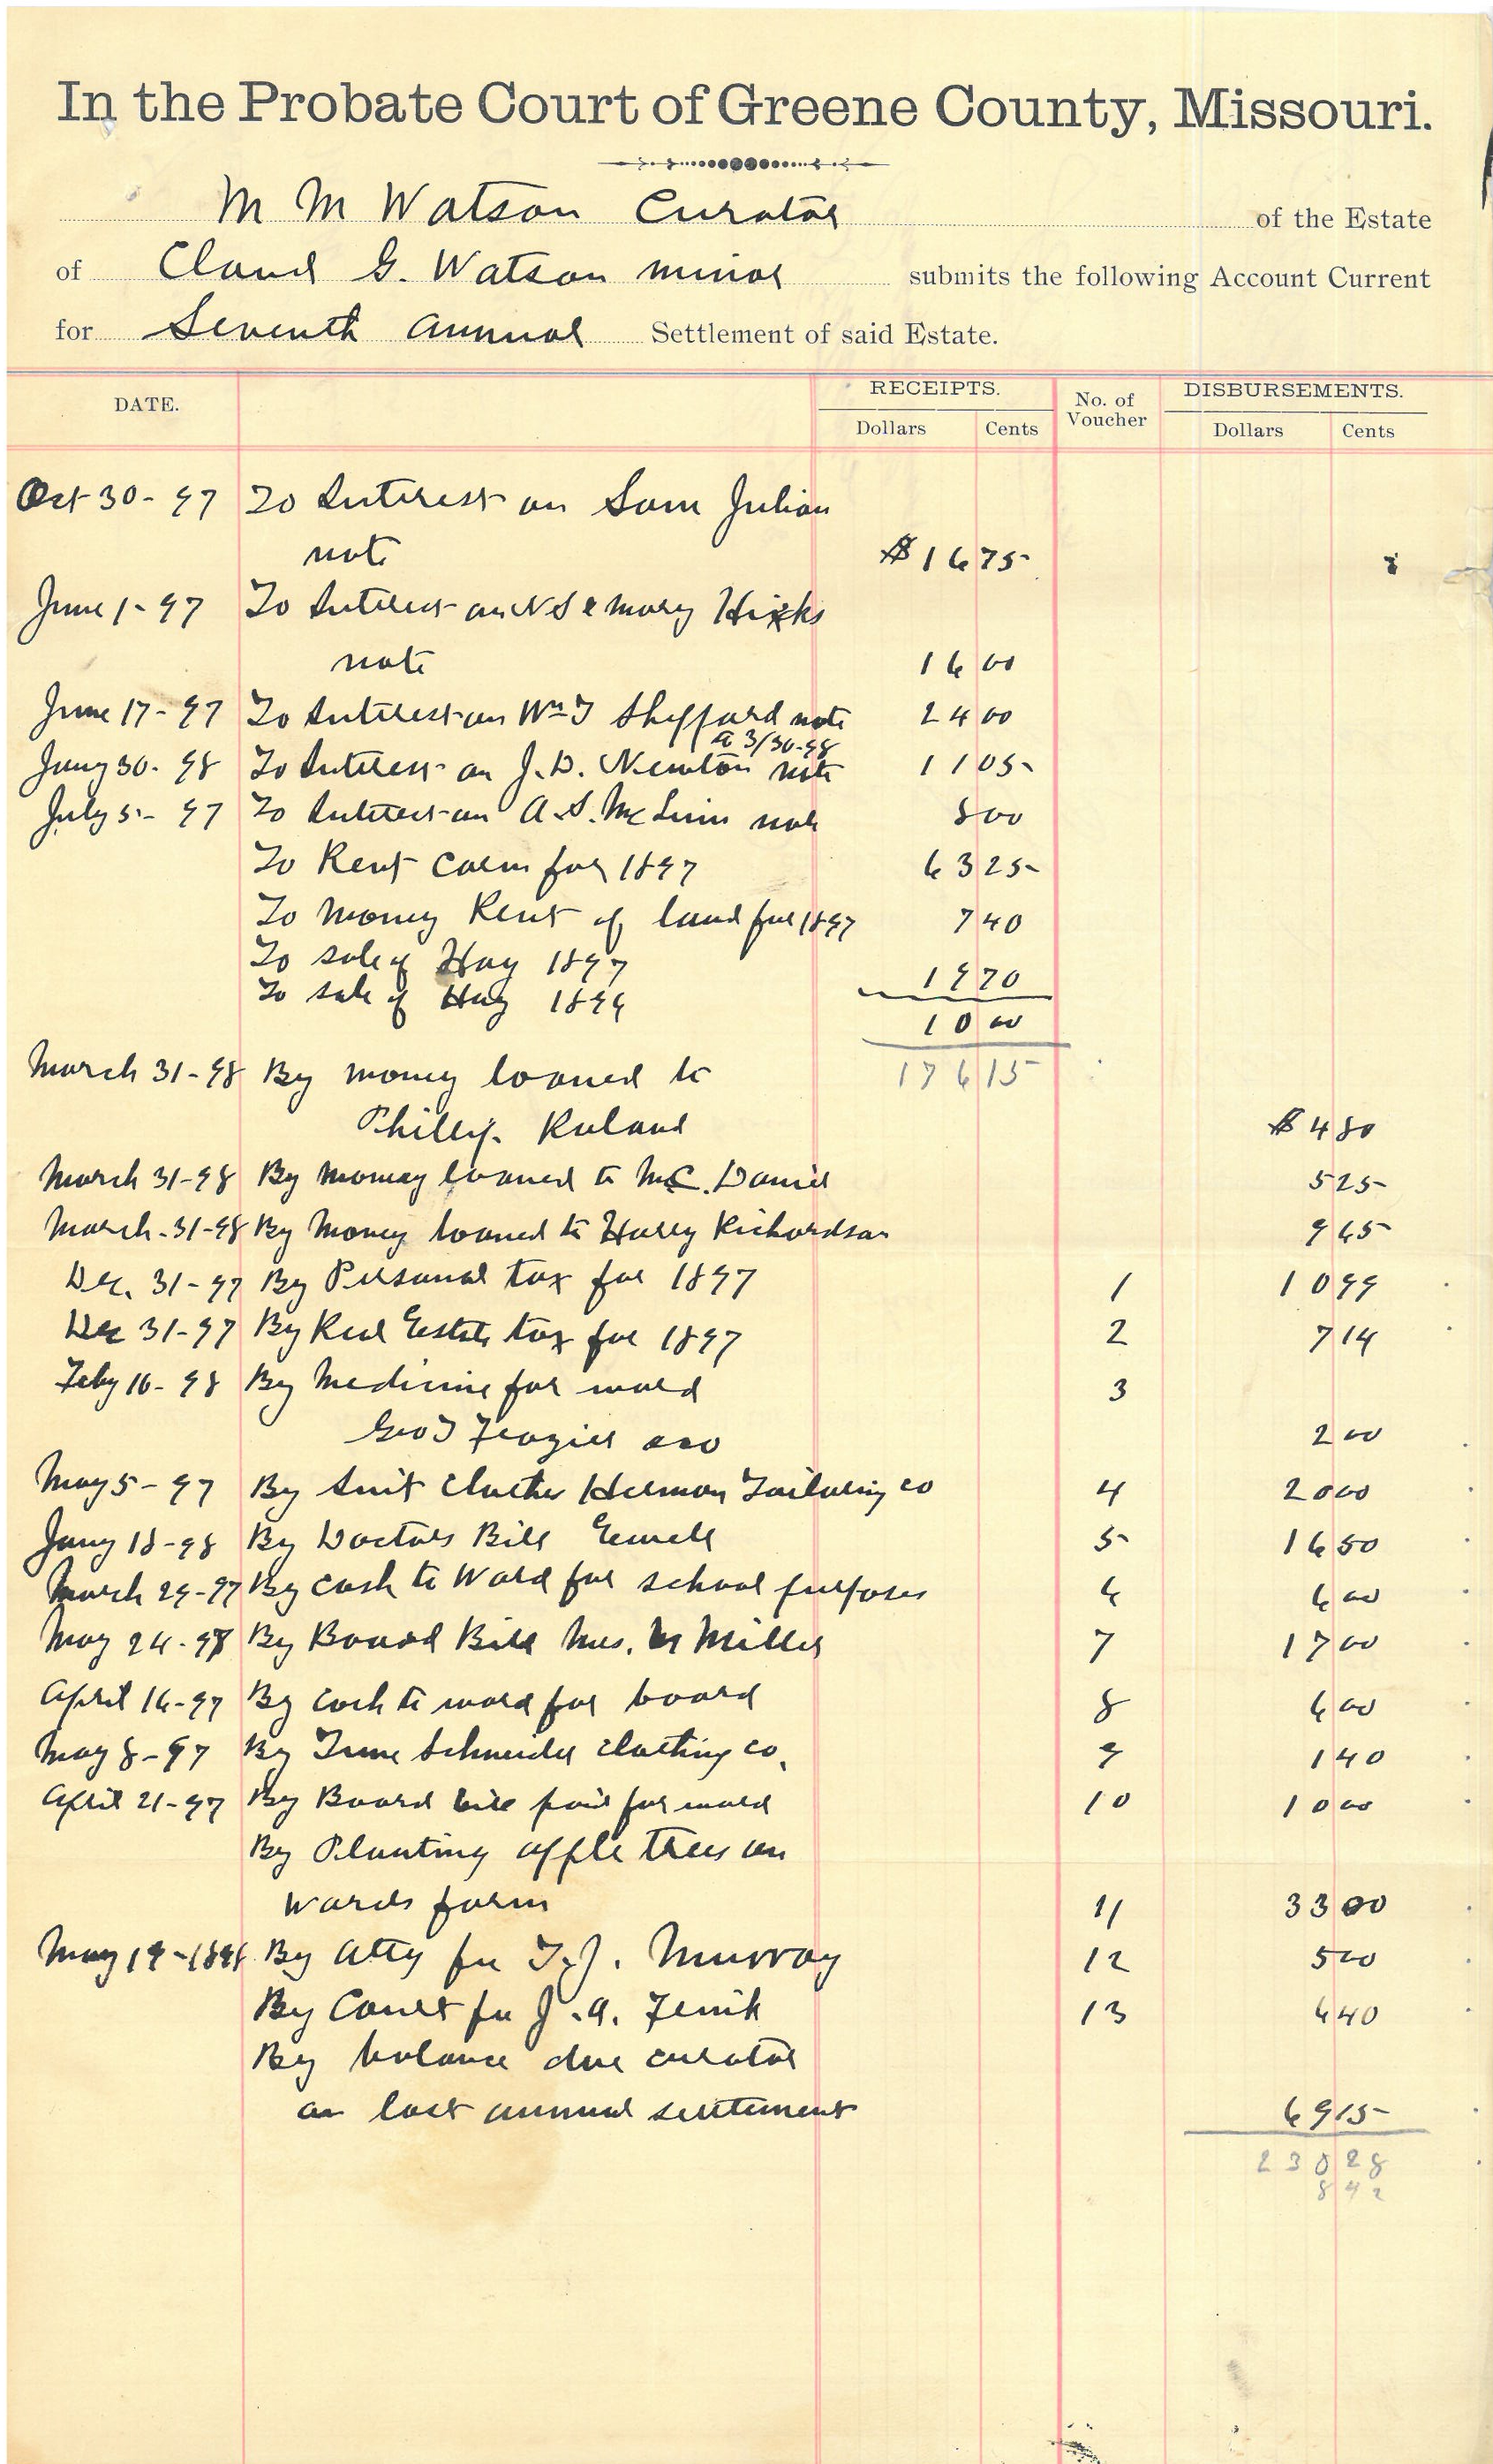 In the Probate Court of Greene County, Missouri.
M M Watson Curator of the Estate
of Claud G. Watson minor submits the following Account Current
for Seventh Annual Settlement of said Estate.
DATE. RECEIPTS. No. of Voucher DISBURSEMENTS.
Dollars Cents Dollars Cents
Oct 30 - 97 To Interest on Sam Julian
note $16 75
June 1 - 97 To Interest on N S & Mary Hicks
note 16 00
June 17 - 97 To Interest on Wm T Sheppard note 24 00
to 3/30-98
Jany 30 - 98 To Interest on J. D. Newton note 11 05
July 5 - 97 To Interest on A. S. note 8 00
To Rent Corn for 1897 63 25
To Money Rent of land for 1897 7 40
To sale of Hay 1897 19 70
To sale of Hay 1896 10 00
176 15
March 31 - 98 By money loaned to
Phillip Ruland $4 80
March 31 - 98 By money loaned to McDaniel 5 25
March - 31 - 98 By Money loaned to Harry Richardson 9 65
Dec. 31 - 97 By Personal tax for 1897 1 10 99
Dec 31 - 97 By Real Estate tax for 1897 2 7 14
Feby 16 - 98 By Medicine for ward 3
Geo T Frazier 2 00
May 5 - 97 By Suit Clothes Herman Tailoring co 4 20 00
Jany 18 - 98 By Doctors Bill 5 16 50
March 29 - 97 By cash to Ward for school purposes 6 6 00
May 24 - 97 By Board Bill Mrs. Miller 7 17 00
April 16 - 97 By Cash to ward for board 8 6 00
May 8 - 97 By Schneider Clothing co. 9 1 40
April 21 - 97 By Board bill paid for ward 10 10 00
By Planting apple trees on
Wards farm 11 33 00
May 19 - 1898 By Atty fee T. J. Murray 12 5 00
By Court fee J. A. Fenik 13 6 40
By balance due curator
on last annual settlement 69 15
230 28
8 42